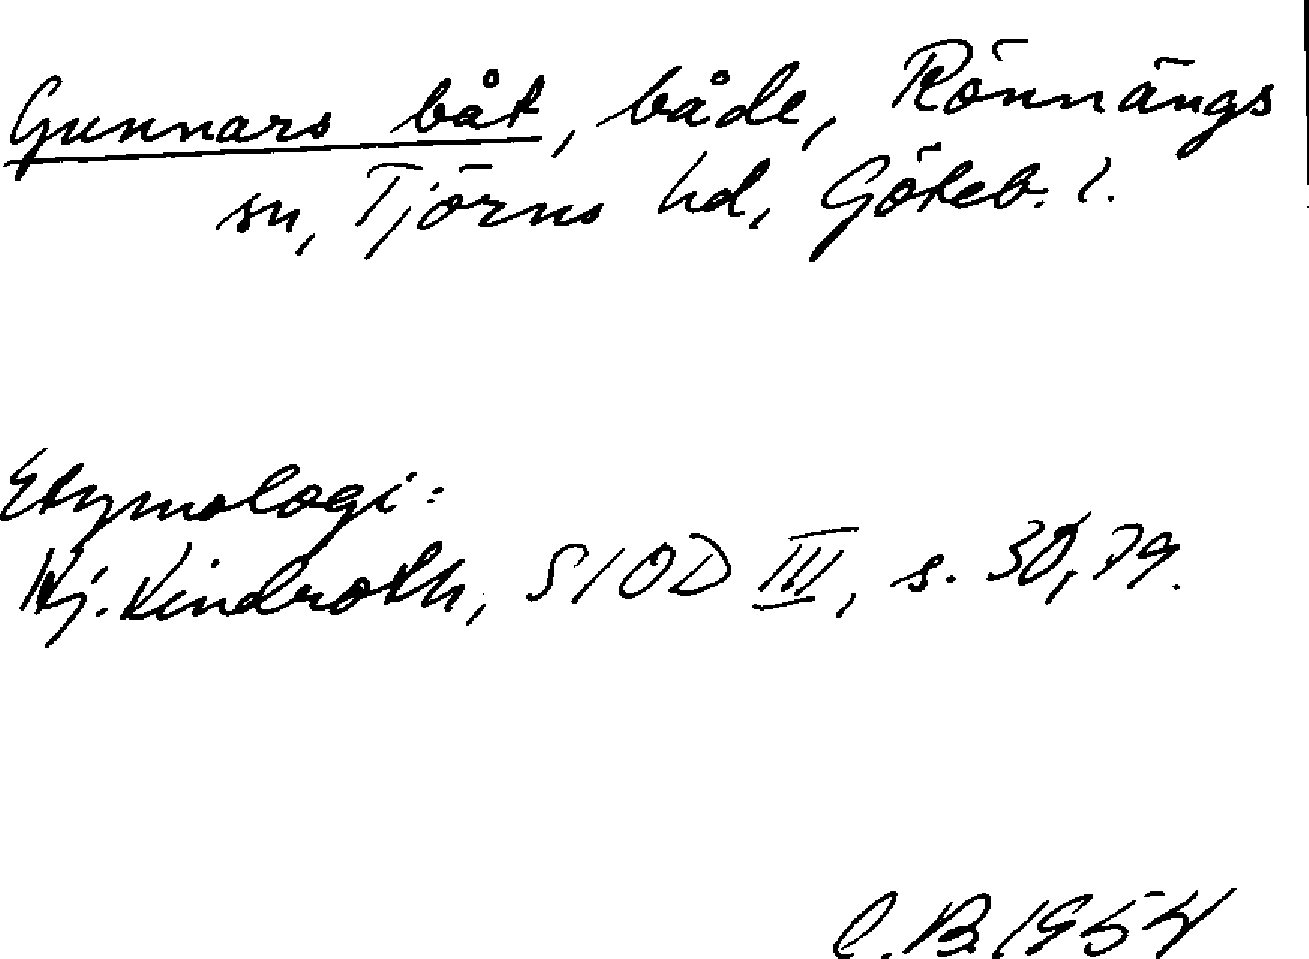 Gunnars båt, både, Rönnängs
sn, Tjörns hd, Göteb. l.
Etymologi:
Hj. Lindroth, SIOD III, s. 30, 79.
C.B. 1954